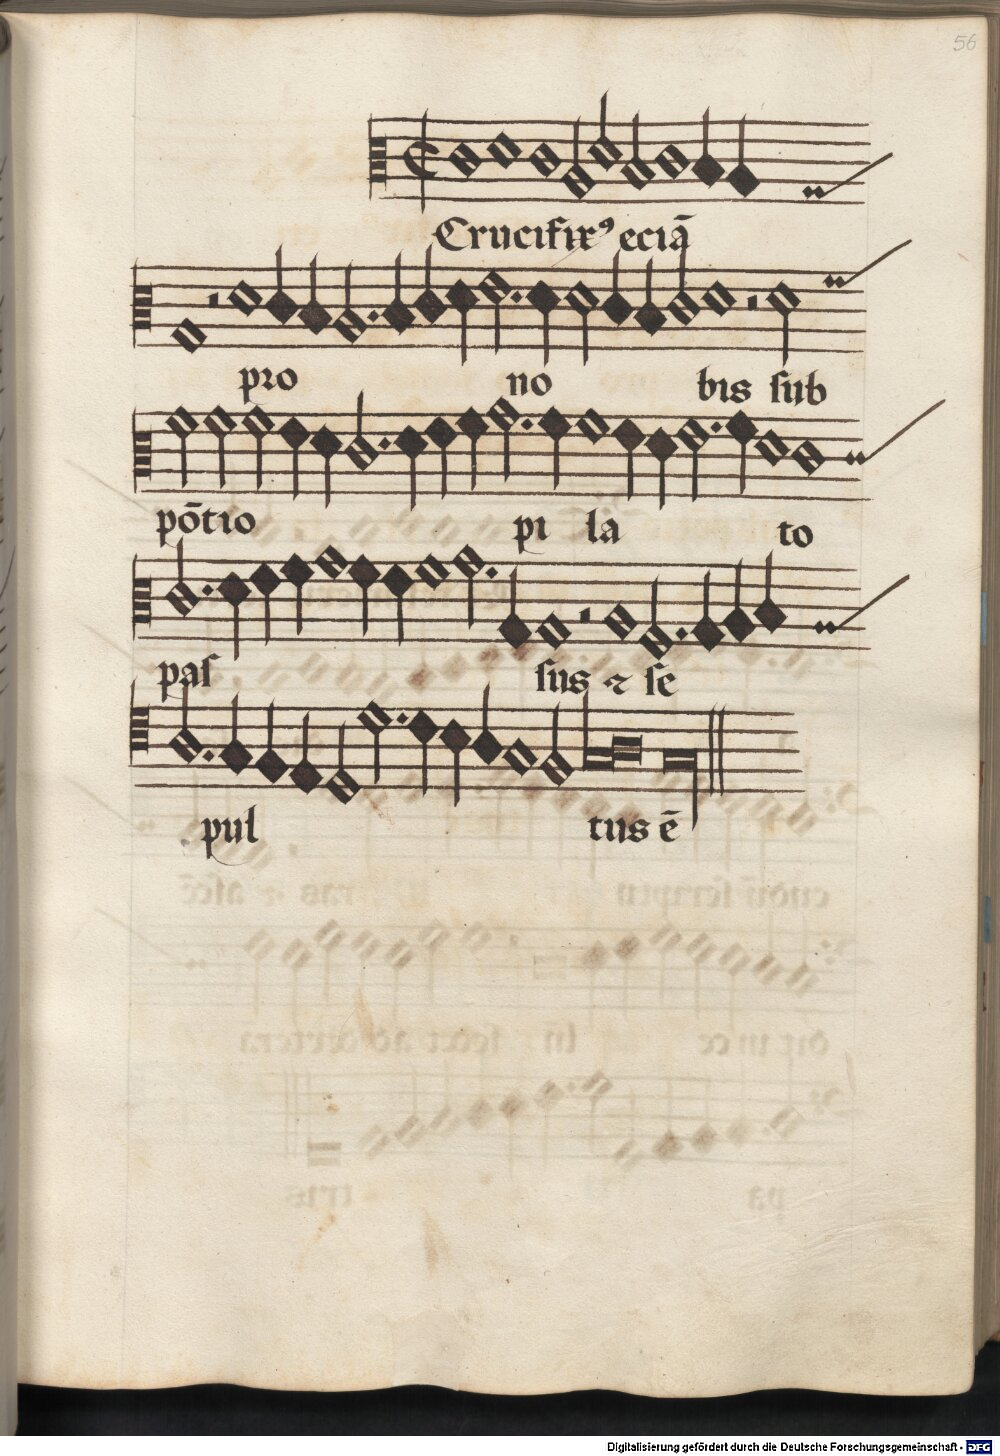 56
Crucifixꝰ eciā
pro no bis sub
pōtio pi la to
pas sus ⁊ se
pul tus ē
Digitalisierung gefördert durch die Deutsche Forschungsgemeinschaft - DFG